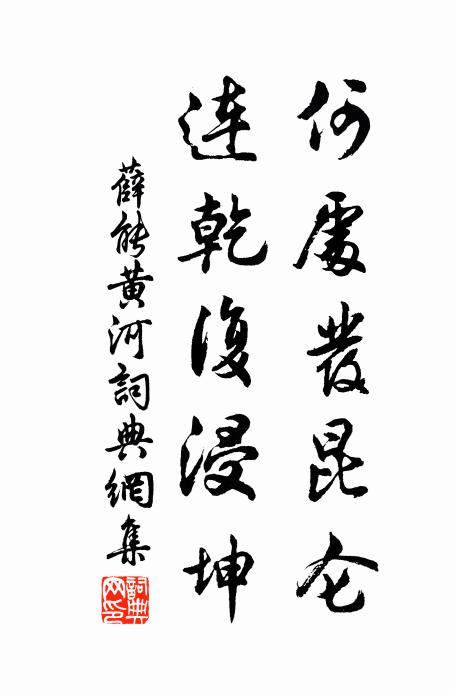 何處發昆仑
連乾復浸坤
薛能黄河詞典網集
詞典網印